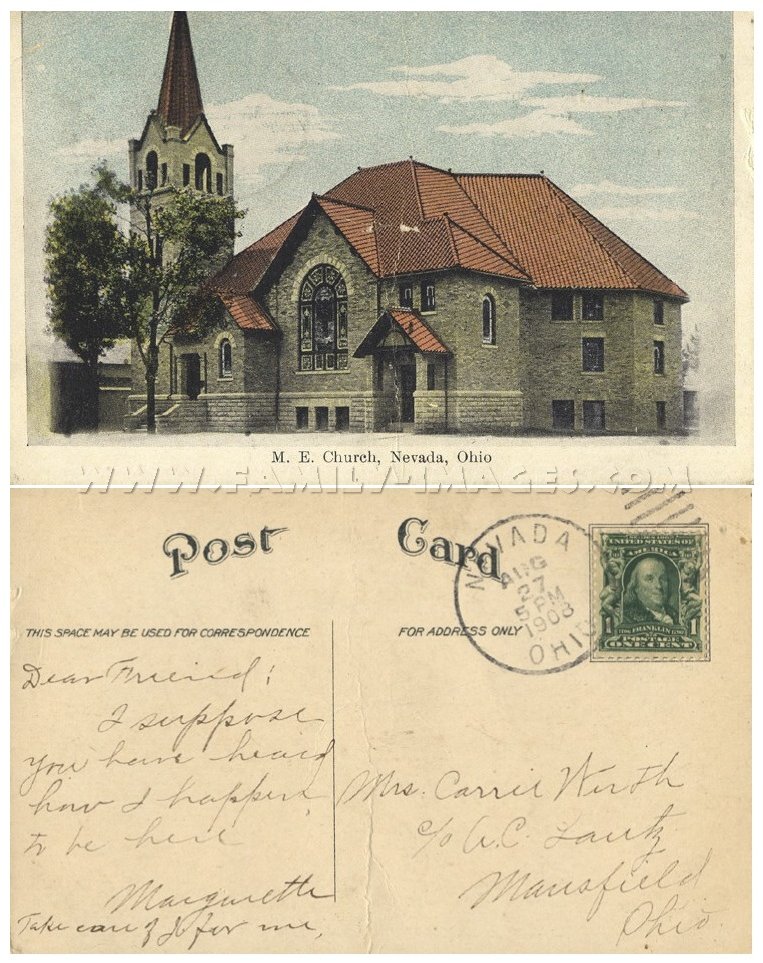 M. E. Church, Nevada, Ohio
WWW.FAMILY-IMAGES.COM
Post Card
THIS SPACE MAY BE USED FOR CORRESPONDENCE
FOR ADDRESS ONLY
NEVADA
AUG
27
5 PM
1908
OHIO
UNITED STATES OF
AMERICA
FRANKLIN
1 1
POSTAGE
ONE CENT
Dear Friend;
I suppose
you have heard
how I happen
to be here
Marguerette
Take care of J for me,
Mrs. Carrie Wirth
c/o A.C. Lantz
Mansfield
Ohio.